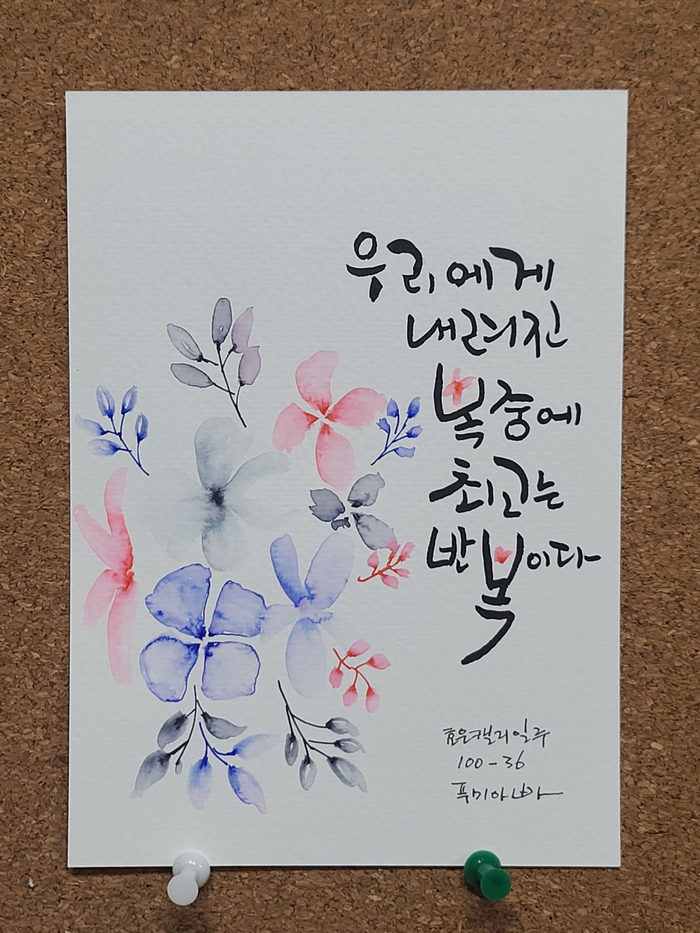 우리에게
내려진
복중에
최고는
반복이다
효운캘리일주
100-36
푸미아빠